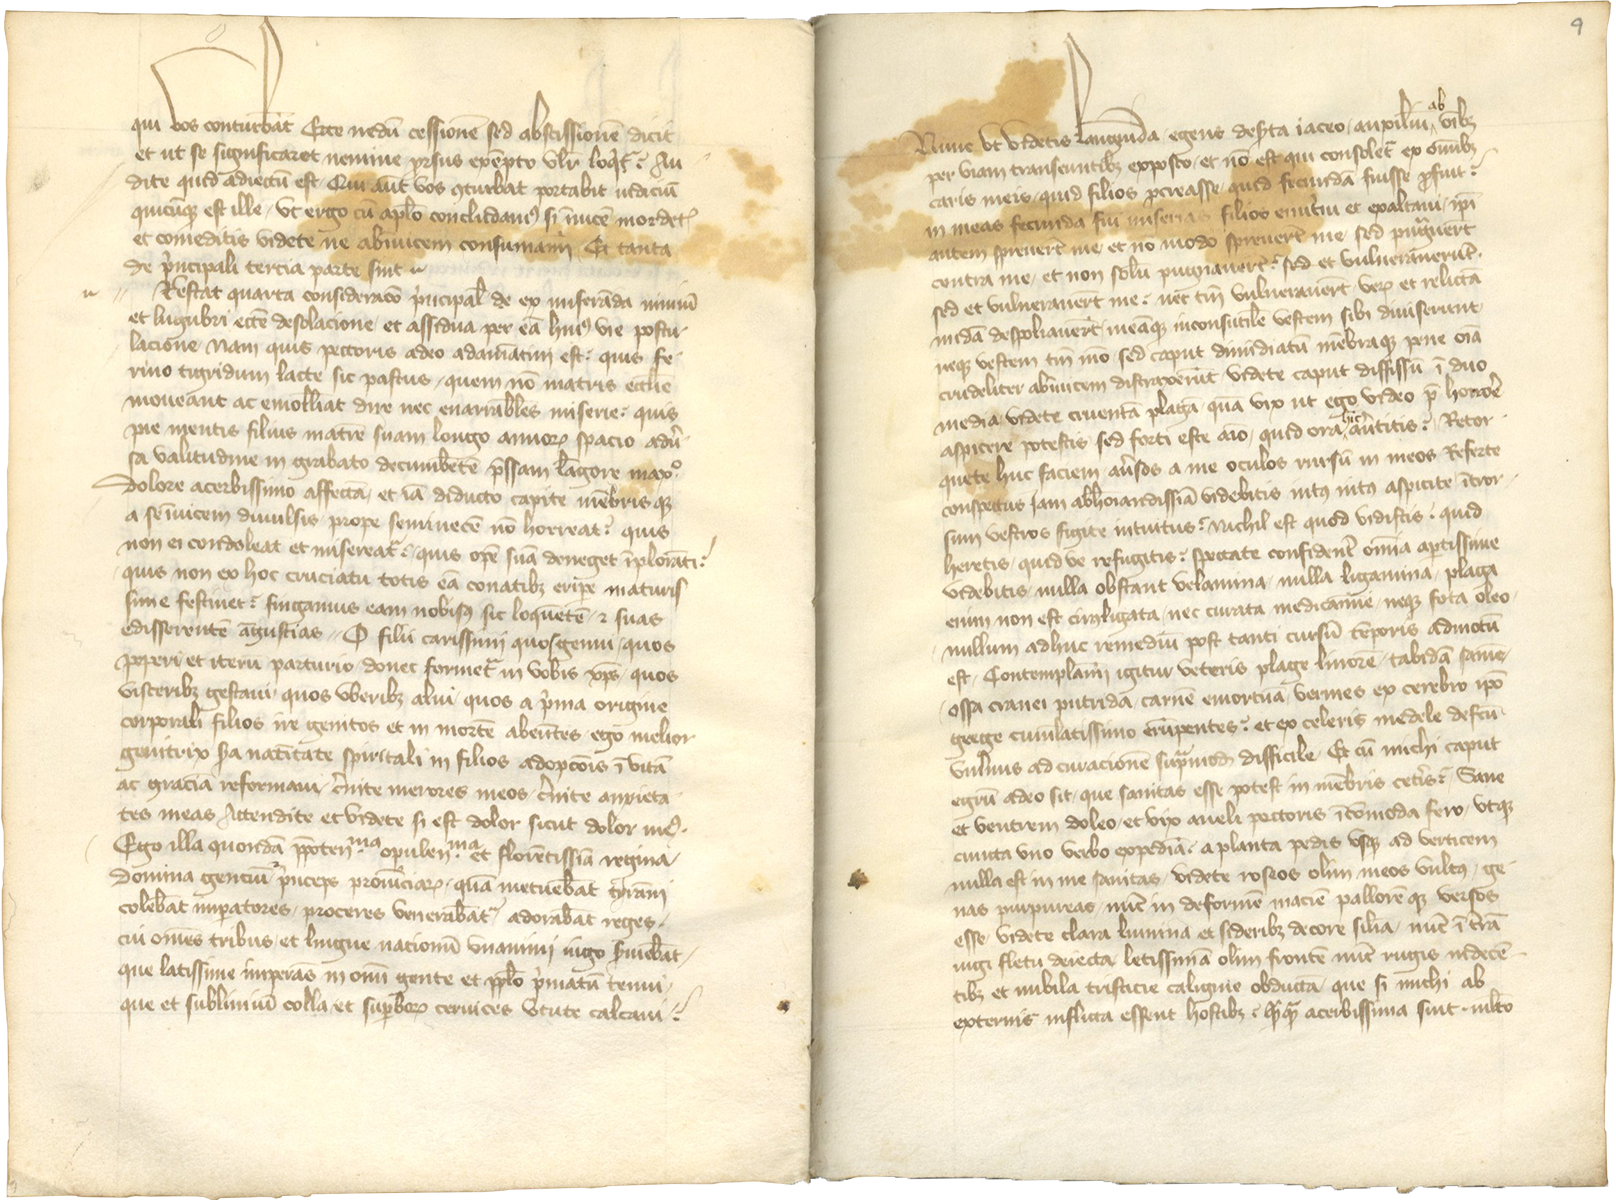 qui vos conturbāt Ecce nedū cessionē sed abscissionē dicit
et ut se significaret nemine prorsus exēpto vlr loqr̄t? Au
dite quid adiectū est Qui aūt vos ɔturbat portabit iudiciū
quicūqꝫ est ille Vt ergo cū aplo concludamꝰ si īuicē mordetꝭ
et comeditis videte ne abinuicem consumam̄ Et tanta
de p̄ncipali tercia parte sint
Restat quarta consideracō p̄ncipal de ex miserāda nimiū
et lugubri eccē desolacione et assidua per eā huiꝰ vie postu
lacione Nam quis pectoris adeo adamātini est? quis fe
rino tigridum lacte sic pastus quem nō matris ecclie
moueant ac emolliāt dire nec enarrabiles miserie? quis
pie mentis filius matrē suam longo annoꝝ spacio aduͤ
sa valitudine in grabato decumbētē p̄ssam lāgore maxᵒ
dolore acerbissimo affectā et iā diducto capite mēbris qꝫ
a seīuicem diuulsis prope seminecē nō horreat? quis
non ei condoleat et misereatᷣ? quis opē suā deneget īplorāti?
quis non ex hoc cruciatu totis eā conatibꝫ eripe maturis
sime festinet? fingamus eam nobisꝯ sic loquentē ⁊ suas
edisserentē āgustias O filii carissimi quos genui quos
peperi et iterū parturio donec formetᷣ in vobis xp̄s quos
visceribꝫ gestaui quos vberibꝫ alui quos a p̄ma origine
corporali filios ire genitos et in mortē abeūtes ego melior
genitrix natītate spiritali in filios adopcōis ī vitā
ac graciā reformaui c̄nite merores meos c̄nite anxieta
tes meas Attendite et videte si est dolor sicut dolor meꝰ
Ego illa quondā p̄poten.ma opulen.ma et florētissiā regina
domina genciū p̄nceps prouīciaꝝ quā metuebāt tyrāni
colebāt imp̄atores proceres venerabātᷣ adorabāt reges
cui om̄es tribus et lingue nacionū vnanimi iugo s̄uiebāt
que latissime imperās in om̄i gente et pplo p̄matū tenui
que et sublimiū colla et suꝑboꝝ ceruices Vtute calcaui?
9
Nunc vt videtis languida egens des̄ta iaceo auxiliū ab om̄ibꝫ
per viam transeuntibꝫ exposco et nō est qui consoletᷣ ex om̄ibꝫ
caris meis quid filios p̄creasse quid fecundā fuisse p̄fuit?
in meas fecunda fui miserias filios enutriui et exaltaui ip̄i
autem spreuerūt me et nō modo spreuerūt me sed pugnauerūt
contra me et non solū pugnauerūt sed et vulnerauerūt
sed et vulnerauert me? nec tm̄ vulnerauerūt veꝝ et relictā
nudā despoliauerūt meāqꝫ inconsutilē vestem sibi diuiserunt
neqꝫ vestem tm̄ īmo sed caput dimidiatū mēbraqꝫ pene oīa
crudeliter abinuicem distraxerūt videte caput diffissū ī duo
media videte cruentā plagā quā vix ut ego video p̄ horrore
aspicere potestis sed forti este aīo quid ora hīc au̅titis? Retor
quete huc faciem au̅sos a me oculos rursū in meos Referte
conspectus Iam abhorrandissiā videbitis intꝰ intꝰ aspicite ītror
sum vestros figite intuitus? Nichil est quod vidistis? quid
heretis quid ve refugitis? spectate confidenť omīa aptissime
videbitis nulla obstant velamina nulla ligamina plaga
enim non est circūligata nec curata medicamīe neqꝫ fota oleo
nullum adhuc remediū post tanti cursū tēporis admotū
est Contemplam̄ igitur veteris plage liuorē tabidā saniē
ossa cranei putrida carnē emortuā vermes ex cerebro ip̄o
grege cumlatissimo erūpentes? et ex celeris medele defcū
vulnus ad curacionē sup̄modū difficile Et cū michi caput
egrū adeo sit que sanitas esse potest in mēbris cetꝭs? Sane
et ventrem doleo et vix aneli pectoris īcōmoda fero vtqꝫ
cuncta vno verbo expediā a planta pedis vsqꝫ ad verticem
nulla est in me sanitas videte roseos olim meos vultꝰ ge
nas purpureas nūc in deformē maciē pallorēqꝫ versos
esse videte clara lumina et sideribꝫ decore silia nūc ī trā
iugi fletu deiecta letissimā olim frontē nūc rugis indecē
tibꝫ et nubila tristicie caligine obductā que si michi ab
externis inflicta essent hostibꝫ q̄qꝫ acerbissima sint mlto